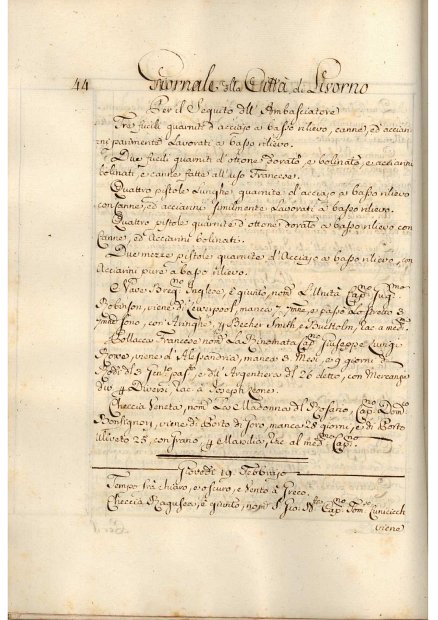 44 Giornale della Città di Livorno
Per il Seguito dell' Ambasciatore
Tre fucili guarniti d'acciajo a basso rilievo, canne, ed acciari-
ni parimente Lavorati a basso rilievo.
Due fucili guarniti d'ottone dorato, e bolinato, e acciarini
bolinati, e canne fatte all' uso Francese.
Quattro pistole Lunghe guarnite d'acciajo a basso rilievo
con canne, ed acciarini similmente Lavorati a basso rilievo.
Quattro pistole guarnite d'ottone dorato a basso rilievo con
Canne, ed Acciarini bolinati.
Due mezze pistole guarnite d'Acciajo a basso rilievo, con
Acciarini pure a basso rilievo.
Nave Inglese, è giunto, nom. L'Unità Cap.
Robinson, viene di Liverpool, manca
sono, con Aringhe, Becher Smith, e
Pollacca Francese nom. La Rinomata Cap. Giuseppe Luigi
viene d'Alessandria, manca 3. Mesi, e 9. giorni
e dall' Argentiera del 26 detto, con
a Joseph
Checcia Veneta, nom. La Madonna del Rosario, Cap. Dom.
viene di Porto di Goro, manca 28 giorni, e di Porto
25, con Grano, Marsilia, al med. Cap.
Giovedì 19. Febbrajo
Tempo frà chiaro, e oscuro, e Vento à Greco.
Checcia Ragusea, è giunto, nom. S. Gio. Cap. Tom.
viene